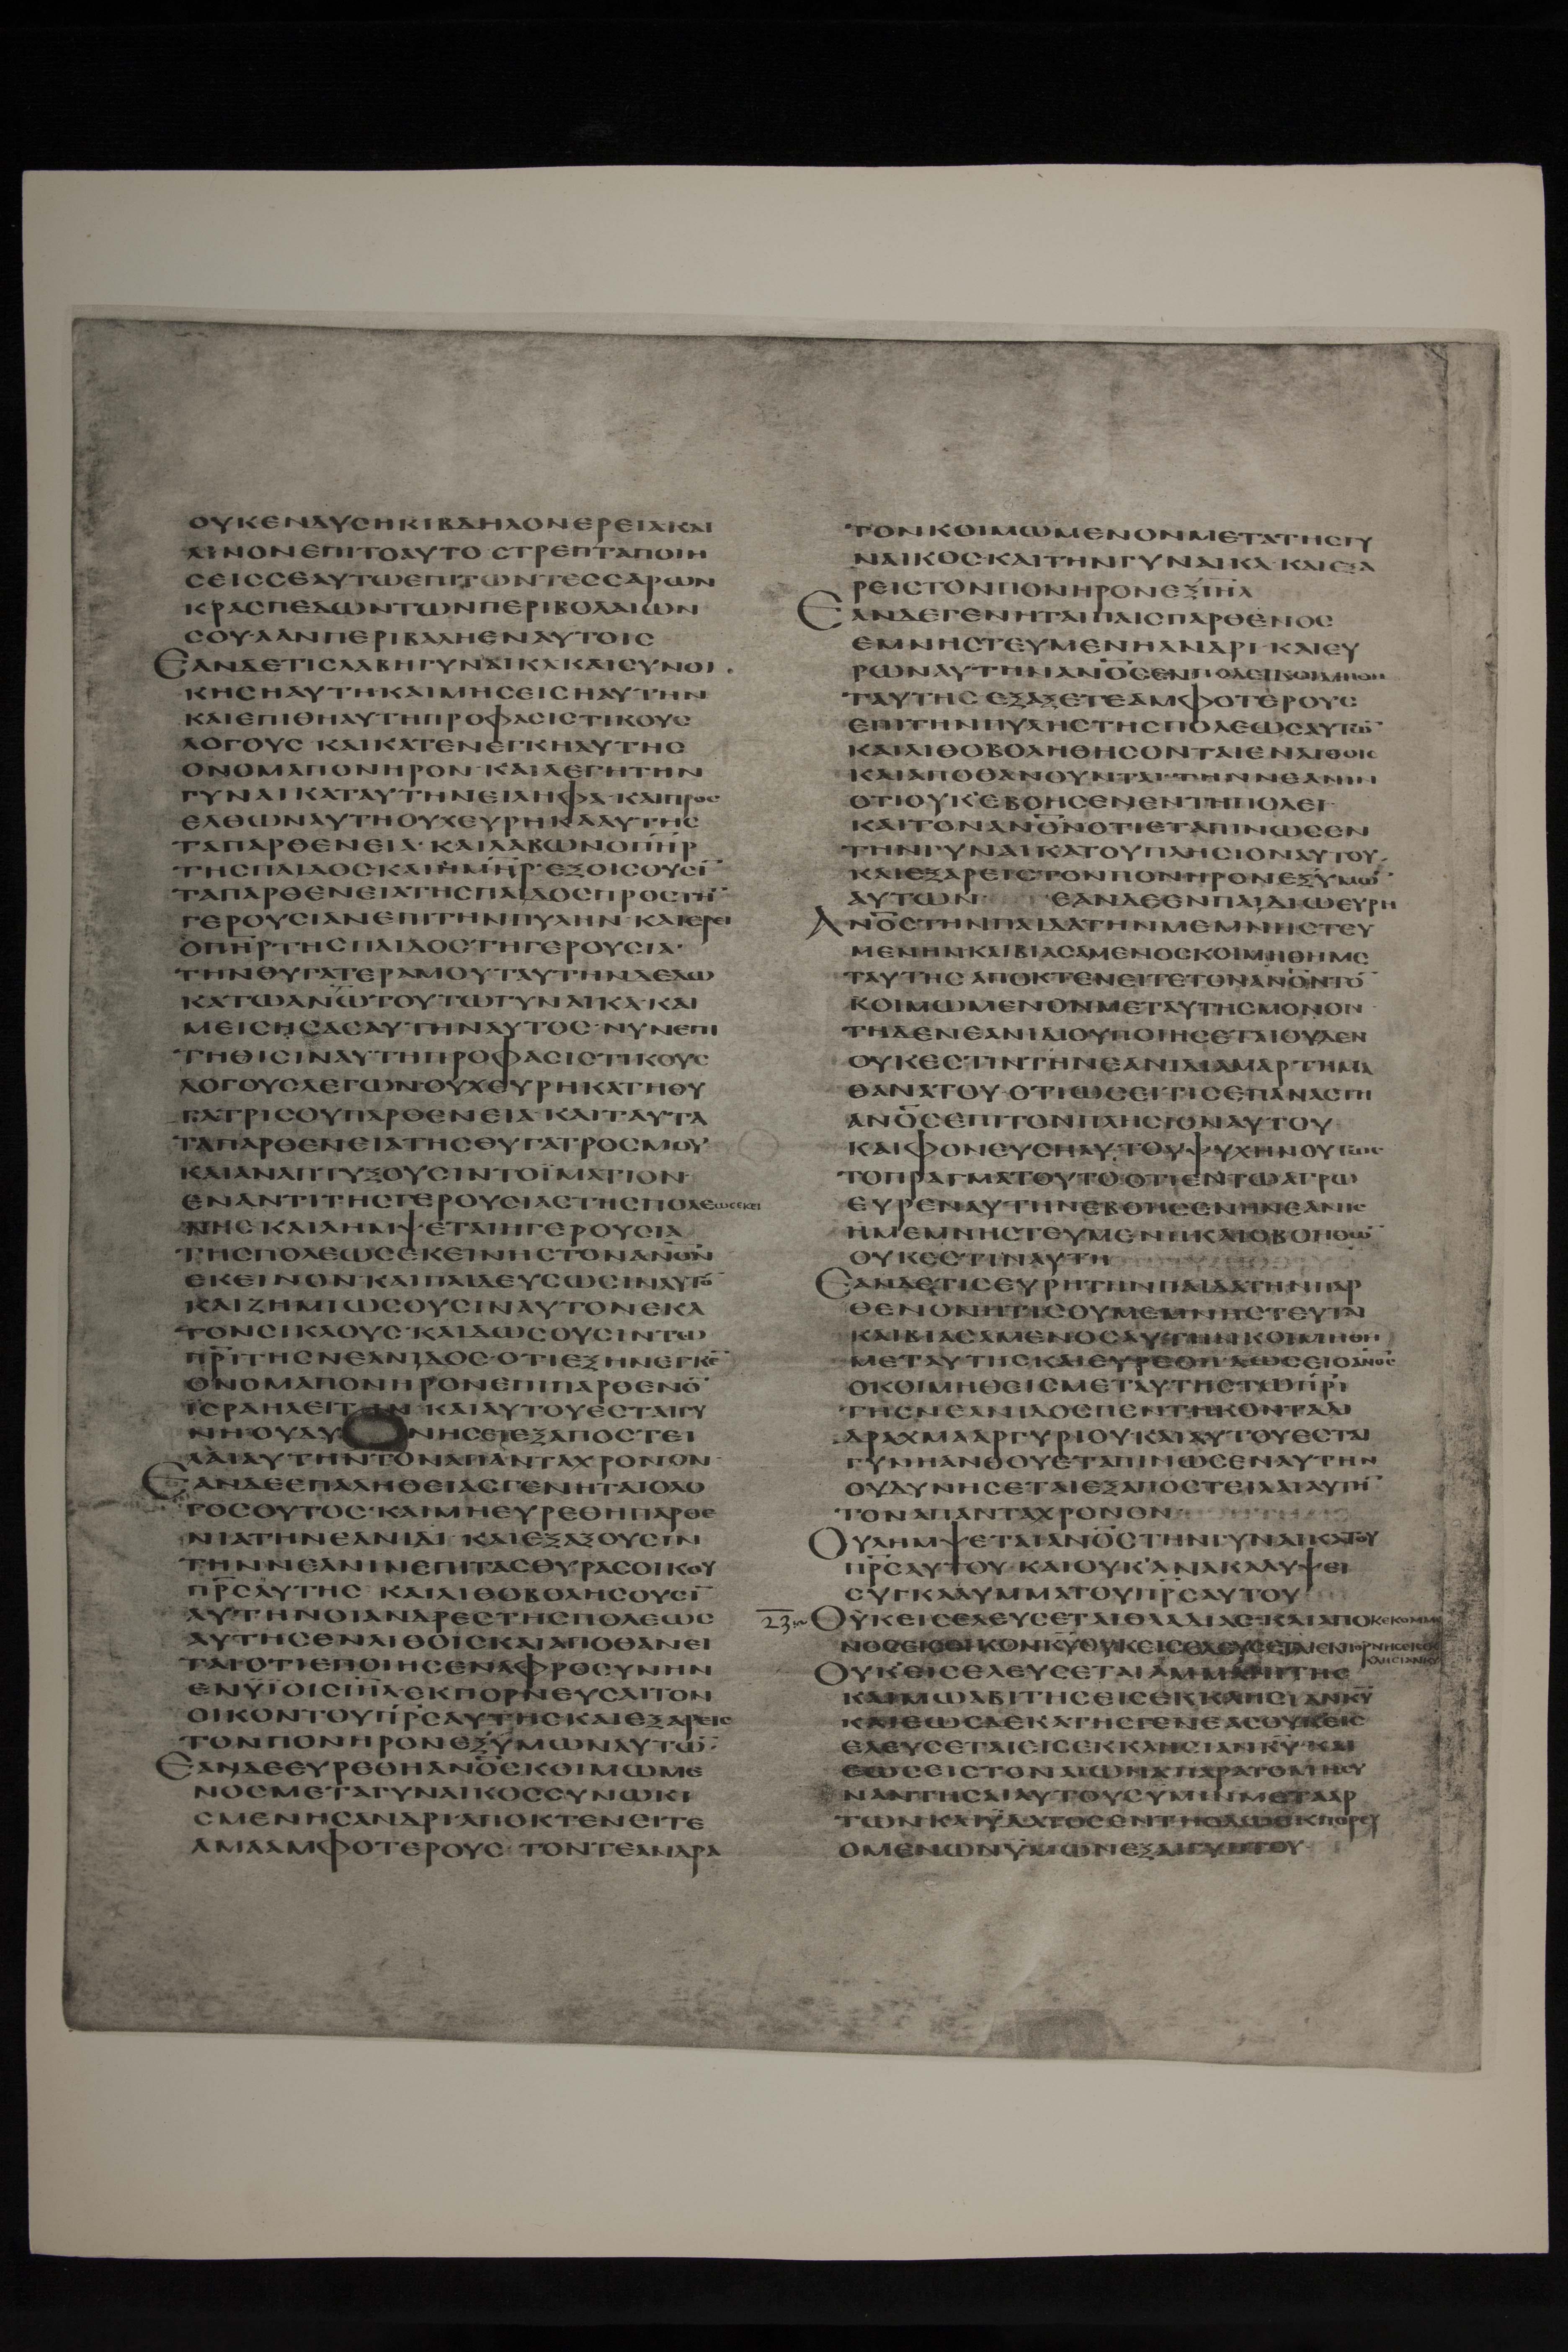 ΟΥΚΕΝΔΥCΗΚΙΒΔΗΛΟΝΕΡΕΙΑΚΑΙ
ΛΙΝΟΝΕΠΙΤΟΑΥΤΟ CΤΡΕΠΤΑΠΟΙΗ
CΕΙCCΕΑΥΤΩΕΠΙΤΩΝΤΕCCΑΡΩΝ
ΚΡΑCΠΕΔΩΝΤΩΝΠΕΡΙΒΟΛΑΙΩΝ
CΟΥ·ΑΑΝΠΕΡΙΒΑΛΗΕΝΑΥΤΟΙC
ΕΑΝΔΕΤΙCΛΑΒΗΓΥΝΑΙΚΑΚΑΙCΥΝΟΙ
ΚΗCΗΑΥΤΗΚΑΙΜΗCΕΙCΗΑΥΤΗΝ
ΚΑΙΕΠΙΘΗΑΥΤΗΠΡΟΦΑCΙCΤΙΚΟΥC
ΛΟΓΟΥC ΚΑΙΚΑΤΕΝΕΓΚΗΑΥΤΗC
ΟΝΟΜΑΠΟΝΗΡΟΝ·ΚΑΙΛΕΓΗΤΗΝ
ΓΥΝΑΙΚΑΤΑΥΤΗΝΕΙΛΗΦΑ·ΚΑΙΠΡΟC
ΕΛΘΩΝΑΥΤΗΟΥΧΕΥΡΗΚΑΑΥΤΗC
ΤΑΠΑΡΘΕΝΕΙΑ·ΚΑΙΛΑΒΩΝΟΠ̅Η̅Ρ
ΤΗCΠΑΙΔΟCΚΑΙΗΜ̅Η̅Ρ·ΕΞΟΙCΟΥCΙ̅
ΤΑΠΑΡΘΕΝΕΙΑΤΗCΠΑΙΔΟCΠΡΟCΤΗ̅
ΓΕΡΟΥCΙΑΝΕΠΙΤΗΝΠΥΛΗΝ·ΚΑΙΕΡΕΙ
ΟΠ̅Η̅ΡΤΗCΠΑΙΔΟCΤΗΓΕΡΟΥCΙΑ·
ΤΗΝΘΥΓΑΤΕΡΑΜΟΥΤΑΥΤΗΝΔΕΔΩ
ΚΑΤΩΑΝ̅Ω̅ΤΟΥΤΩΓΥΝΑΙΚΑ·ΚΑΙ
ΜΕΙCΗCΑCΑΥΤΗΝΑΥΤΟC·ΝΥΝΕΠΙ
ΤΗΘΙCΙΝΑΥΤΗΠΡΟΦΑCΙCΤΙΚΟΥC
ΛΟΓΟΥCΛΕΓΩΝ·ΟΥΧΕΥΡΗΚΑΤΗΘΥ
ΓΑΤΡΙCΟΥΠΑΡΘΕΝΕΙΑ·ΚΑΙΤΑΥΤΑ
ΤΑΠΑΡΘΕΝΕΙΑΤΗCΘΥΓΑΤΡΟCΜΟΥ
ΚΑΙΑΝΑΠΤΥΞΟΥCΙΝΤΟΪΜΑΤΙΟΝ·
ΕΝΑΝΤΙΤΗCΓΕΡΟΥCΙΑCΤΗCΠΟΛΕΩCΕΚΕΙ
ΝΗC·ΚΑΙΛΗΜΨΕΤΑΙΗΓΕΡΟΥCΙΑ
ΤΗCΠΟΛΕΩCΕΚΕΙΝΗCΤΟΝΑΝ̅Ο̅Ν
ΕΚΕΙΝΟΝ·ΚΑΙΠΑΙΔΕΥCΩCΙΝΑΥΤΟ̅
ΚΑΙΖΗΜΙΩCΟΥCΙΝΑΥΤΟΝΕΚΑ
ΤΟΝCΙΚΛΟΥC·ΚΑΙΔΩCΟΥCΙΝΤΩ
Π̅Ρ̅ΙΤΗCΝΕΑΝΙΔΟC·ΟΤΙΕΞΗΝΕΓΚΕ̅
ΟΝΟΜΑΠΟΝΗΡΟΝΕΠΙΠΑΡΘΕΝΟ̅
ΙCΡΑΗΛΕΙΤΙΝ·ΚΑΙΑΥΤΟΥΕCΤΑΙΓΥ
ΝΗ·ΟΥΔΥΝΗCΕΤΕΞΑΠΟCΤΕΙ
ΛΑΙΑΥΤΗΝΤΟΝΑΠΑΝΤΑΧΡΟΝΟΝ·
ΕΑΝΔΕΕΠΑΛΗΘΕΙΑCΓΕΝΗΤΑΙΟΛΟ
ΓΟCΟΥΤΟC·ΚΑΙΜΗΕΥΡΕΘΗΠΑΡΘΕ
ΝΙΑΤΗΝΕΑΝΙΔΙ·ΚΑΙΕΞΑΞΟΥCΙΝ
ΤΗΝΝΕΑΝΙΝΕΠΙΤΑCΘΥΡΑCΟΙΚΟΥ
Π̅Ρ̅CΑΥΤΗC ΚΑΙΛΙΘΟΒΟΛΗCΟΥCΙ̅
ΑΥΤΗΝΟΙΑΝΔΡΕCΤΗCΠΟΛΕΩC
ΑΥΤΗCΕΝΛΙΘΟΙCΚΑΙΑΠΟΘΑΝΕΙ
ΤΑΙ·ΟΤΙΕΠΟΙΗCΕΝΑΦΡΟCΥΝΗΝ
ΕΝΥΪΟΙCΙ̅Η̅Λ·ΕΚΠΟΡΝΕΥCΑΙΤΟΝ
ΟΙΚΟΝΤΟΥΠ̅Ρ̅CΑΥΤΗCΚΑΙΕΞΑΡΕΙC
ΤΟΝΠΟΝΗΡΟΝΕΞΫΜΩΝΑΥΤΩ̅·
ΕΑΝΔΕΕΥΡΕΘΗΑΝ̅Ο̅CΚΟΙΜΩΜΕ
ΝΟCΜΕΤΑΓΥΝΑΙΚΟCCΥΝΩΚΙ
CΜΕΝΗCΑΝΔΡΙ·ΑΠΟΚΤΕΝΕΙΤΕ
ΑΜΑΑΜΦΟΤΕΡΟΥC·ΤΟΝΤΕΑΝΔΡΑ
ΤΟΝΚΟΙΜΩΜΕΝΟΝΜΕΤΑΤΗCΓΥ
ΝΑΙΚΟC·ΚΑΙΤΗΝΓΥΝΑΙΚΑ·ΚΑΙΕΞΑ
ΡΕΙCΤΟΝΠΟΝΗΡΟΝΕΞΙ̅Η̅Λ
ΕΑΝΔΕΓΕΝΗΤΑΙΠΑΙCΠΑΡΘΕΝΟC
ΕΜΝΗCΤΕΥΜΕΝΗΑΝΔΡΙ·ΚΑΙΕΥ
ΡΩΝΑΥΤΗΝΑΝ̅Ο̅CΕΝΠΟΛΕΙΚΟΙΜΗΘΗ
ΤΑΥΤΗC ΕΞΑΞΕΤΕΑΜΦΟΤΕΡΟΥC
ΕΠΙΤΗΝΠΥΛΗCΤΗCΠΟΛΕΩCΑΥΤΩ̅
ΚΑΙΛΙΘΟΒΟΛΗΘΗCΟΝΤΑΙΕΝΛΙΘΟΙC
ΚΑΙΑΠΟΘΑΝΟΥΝΤΑΙ·ΤΗΝΝΕΑΝΙΝ
ΟΤΙΟΥΚ'ΕΒΟΗCΕΝΕΝΤΗΠΟΛΕΙ·
ΚΑΙΤΟΝΑΝ̅Ο̅ΝΟΤΙΕΤΑΠΙΝΩCΕΝ
ΤΗΝΓΥΝΑΙΚΑΤΟΥΠΛΗCΙΟΝΑΥΤΟΥ·
ΚΑΙΕΞΑΡΕΙCΤΟΝΠΟΝΗΡΟΝΕΞΥΜΩ̅
ΑΥΤΩΝ ΕΑΝΔΕΕΝΠΑΙΔΙΩΕΥΡΗ
ΑΝ̅Ο̅CΤΗΝΠΑΙΔΑΤΗΝΜΕΜΝΗCΤΕΥ
ΜΕΝΗΝΚΑΙΒΙΑCΑΜΕΝΟCΚΟΙΜΗΘΗΜΕ
ΤΑΥΤΗC ΑΠΟΚΤΕΝΕΙΤΕΤΟΝΑΝ̅Ο̅ΝΤΟ̅
ΚΟΙΜΩΜΕΝΟΝΜΕΤΑΥΤΗCΜΟΝΟΝ·
ΤΗΔΕΝΕΑΝΙΔΙΟΥΠΟΙΗCΕΤΑΙΟΥΔΕΝ
ΟΥΚΕCΤΙΝΤΗΝΕΑΝΙΔΙΑΜΑΡΤΗΜΑ
ΘΑΝΑΤΟΥ·ΟΤΙΩCΕΙΤΙCΕΠΑΝΑCΤΗ
ΑΝ̅Ο̅CΕΠΙΤΟΝΠΛΗCΙΟΝΑΥΤΟΥ
ΚΑΙΦΟΝΕΥCΗΑΥΤΟΥΨΥΧΗΝΟΥΤΩC
ΤΟΠΡΑΓΜΑΤΟΥΤΟ·ΟΤΙΕΝΤΩΑΓΡΩ
ΕΥΡΕΝΑΥΤΗΝΕΒΟΗCΕΝΗΝΕΑΝΙC
ΗΜΕΜΝΗCΤΕΥΜΕΝΗΚΑΙΟΒΟΗΘΩ̅
ΟΥΚΕCΤΙΝΑΥΤΗ
ΕΑΝΔΕΤΙCΕΥΡΗΤΗΝΠΑΙΔΑΤΗΝΠΑΡ
ΘΕΝΟΝΗΤΙCΟΥΜΕΜΝΗCΤΕΥΤΑΙ
ΚΑΙΒΙΑCΑΜΕΝΟCΑΥΤΗΝΚΟΙΜΗΘΗ
ΜΕΤΑΥΤΗCΚΑΙΕΥΡΕΘΗ·ΔΩCΕΙΟΑΝ̅Ο̅C
ΟΚΟΙΜΗΘΕΙCΜΕΤΑΥΤΗCΤΩΠ̅Ρ̅Ι
ΤΗCΝΕΑΝΙΔΟCΠΕΝΤΗΚΟΝΤΑΔΙ
ΔΡΑΧΜΑΑΡΓΥΡΙΟΥ·ΚΑΙΑΥΤΟΥΕCΤΑΙ
ΓΥΝΗΑΝΘΟΥΕΤΑΠΙΝΩCΕΝΑΥΤΗΝ
ΟΥΔΥΝΗCΕΤΑΙΕΞΑΠΟCΤΕΙΛΑΙΑΥΤΗ̅
ΤΟΝΑΠΑΝΤΑΧΡΟΝΟΝ
ΟΥΛΗΜΨΕΤΑΙΑΝ̅Ο̅CΤΗΝΓΥΝΑΙΚΑΤΟΥ
Π̅Ρ̅CΑΥΤΟΥ·ΚΑΙΟΥΚ'ΑΝΑΚΑΛΥΨΕΙ
CΥΓΚΑΛΥΜΜΑΤΟΥΠ̅Ρ̅CΑΥΤΟΥ
23 ΟΥΚΕΙCΕΛΕΥCΕΤΑΙΘΛΑΔΙΑC·ΚΑΙΑΠΟΚΕΚΟΜΜΕ
ΟΥΚ'ΕΙCΕΛΕΥCΕΤΑΙΑΜΜΑΝΙΤΗC
ΚΑΙΜΩΑΒΙΤΗCΕΙCΕΚΚΛΗCΙΑΝΚ̅Υ̅
ΚΑΙΕΩCΔΕΚΑΤΗCΓΕΝΕΑCΟΥΚΕΙC
ΕΛΕΥCΕΤΑΙΕΙCΕΚΚΛΗCΙΑΝΚ̅Υ̅·ΚΑΙ
ΕΩCΕΙCΤΟΝΑΙΩΝΑΠΑΡΑΤΟΜΗCΥ
ΝΑΝΤΗCΑΙΑΥΤΟΥCΥΜΙΝΜΕΤΑΑΡ
ΤΩΝΚΑΙΫΔΑΤΟCΕΝΤΗΟΔΩΕΚΠΟΡΕΥ
ΟΜΕΝΩΝΫΜΩΝΕΞΑΙΓΥΠΤΟΥ·